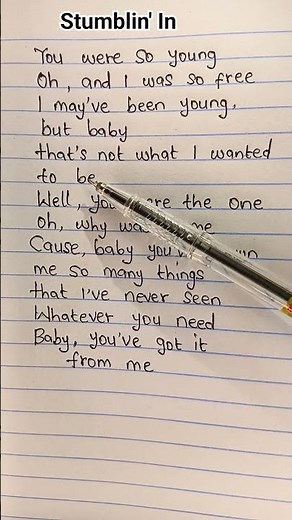 Stumblin' In
You were so young
Oh, and I was so free
I may've been young,
but baby
that's not what I wanted
to be
Well, you are the one
Oh, why was me
Cause, baby you've
me so many things
that I've never seen
Whatever you need
Baby, you've got it
from me